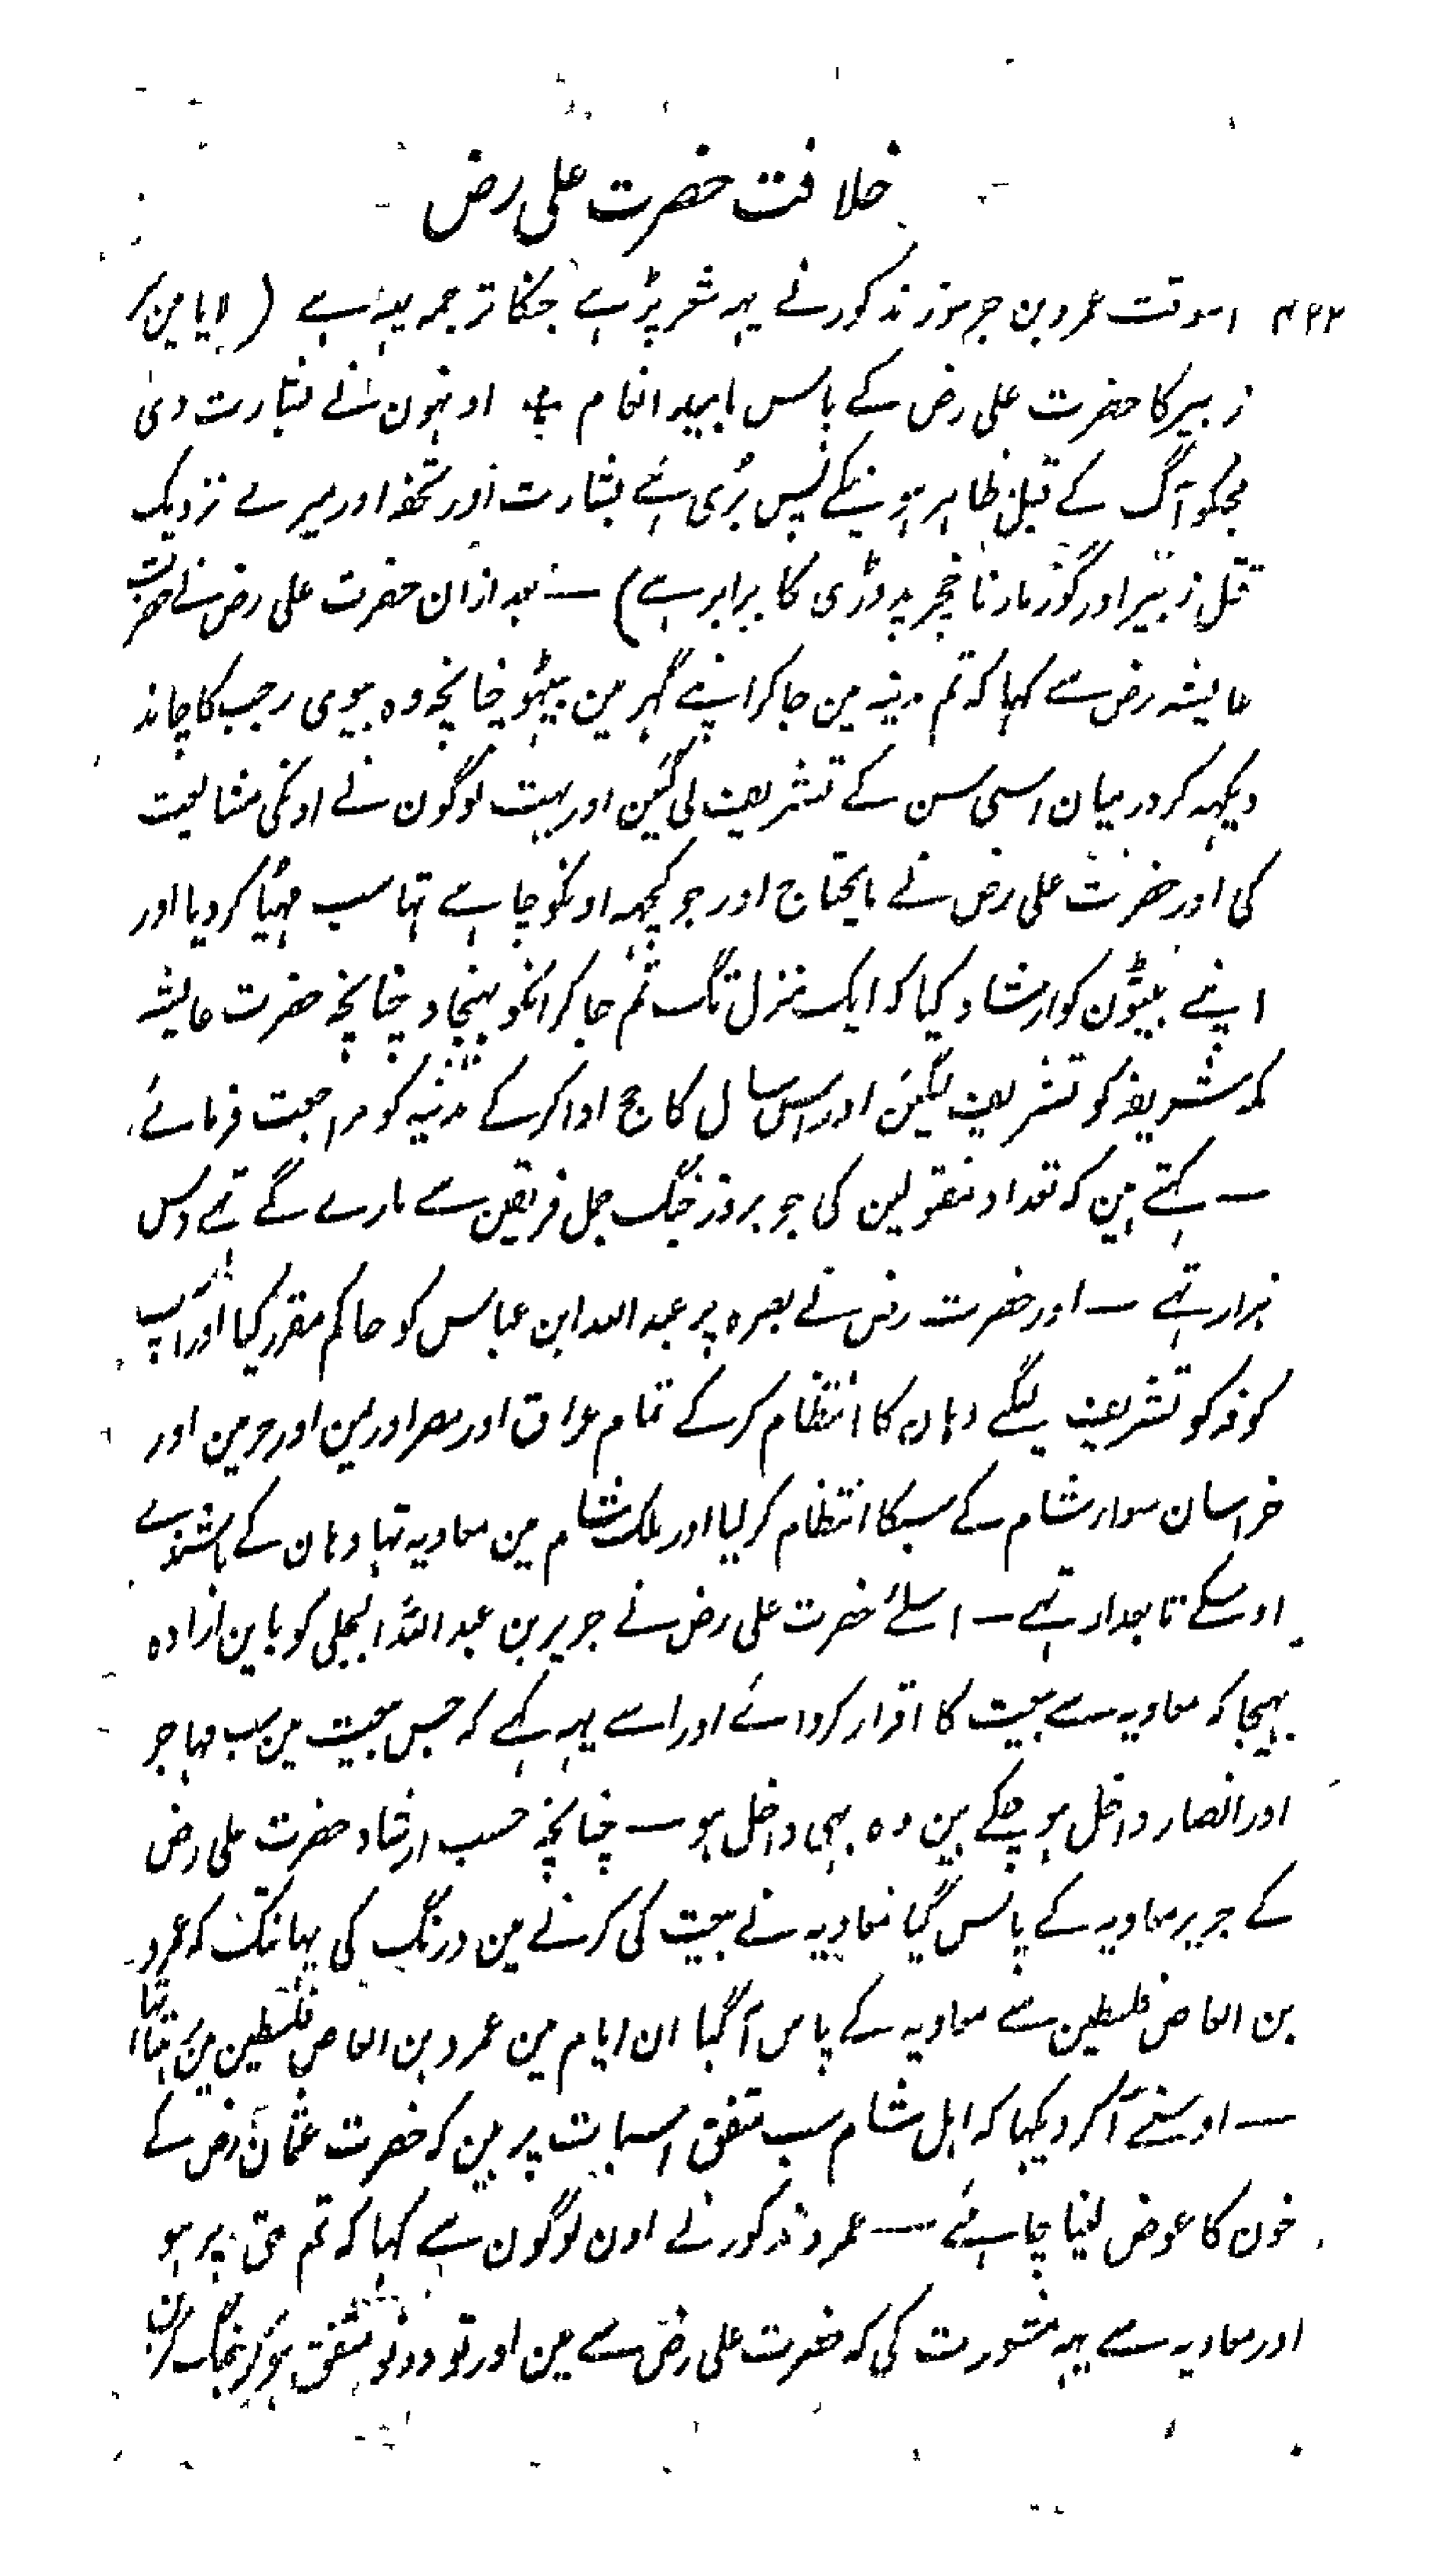 خلافت حضرت علی رض
۴۲۲ اسوقت عمرو بن جرموز مذکور نے یہہ شعر پڑہے جنکا ترجمہ یہہ ہے ( لایا مین سر
زبیر کا حضرت علی رض کے پاس بامید انعام ؞ اونہون نے بشارت دی
مجکو آگ کے قبل ظاہر ہونیکے پس بُری ہے بشارت اور تحفہ اور میرے نزدیک
قتل زبیر اور گوز مارنا خچر بد وڑی کا برابر ہے) — بعد ازان حضرت علی رض نے حضرت
عایشہ رض سے کہا کہ تم مدینہ مین جاکر اپنے گہر مین بیٹہو چنانچہ وہ بیوی رجب کا چاند
دیکہہ کر درمیان اسی سن کے تشریف لی گئین اور بہت لوگون نے اونکی مشایعت
کی اور حضرت علی رض نے مایحتاج اور جو کچہہ اونکو چاہے تہا سب مہیّا کردیا اور
اپنے بیٹون کو ارشاد کیا کہ ایک منزل تک تم جاکر انکو پہنچادو چنانچہ حضرت عایشہ
مکہ شریفہ کو تشریف لیگئین اور اس سال کا حج ادا کرکے مدینہ کو مراجعت فرمائے
— کہتے ہین کہ تعداد مقتولین کی جو بروز جنگ جمل فریقین سے مارے گے تہے دس
ہزار تہے — اور حضرت رض نے بصرہ پر عبد اللہ ابن عباس کو حاکم مقرر کیا اور آپ
کوفہ کو تشریف لیگے وہان کا انتظام کرکے تمام عراق اور مصر اور یمن اور حرمین اور
خراسان سوار شام کے سبکا انتظام کرلیا اور ملک شام مین معاویہ تہا وہان کے باشندے
اوسکے تابعدار تہے — اسلئے حضرت علی رض نے جریر بن عبد اللہ البجلی کو باین ارادہ
بہیجا کہ معاویہ سے بیعت کا اقرار کروائے اور اسے یہہ کہے کہ جس بیعت مین سب مہاجر
اور انصار داخل ہو چکے ہین وہ بہی داخل ہو — چنانچہ حسب ارشاد حضرت علی رض
کے جریر معاویہ کے پاس گیا معاویہ نے بیعت کی کرنے مین درنگ کی یہانتک کہ عمرو
بن العاص فلسطین سے معاویہ کے پاس آگیا ان ایام مین عمرو بن العاص فلسطین مین رہتا تہا
— اوسنے آکر دیکہا کہ اہل شام سب متفق اسبات پر ہین کہ حضرت عثمان رض کے
خون کا عوض لینا چاہئے — عمرو مذکور نے اون لوگون سے کہا کہ تم حق پر ہو
اور معاویہ سے یہہ مشورت کی کہ حضرت علی رض سے مین اور تو دونو متفق ہوکر جنگ کرین